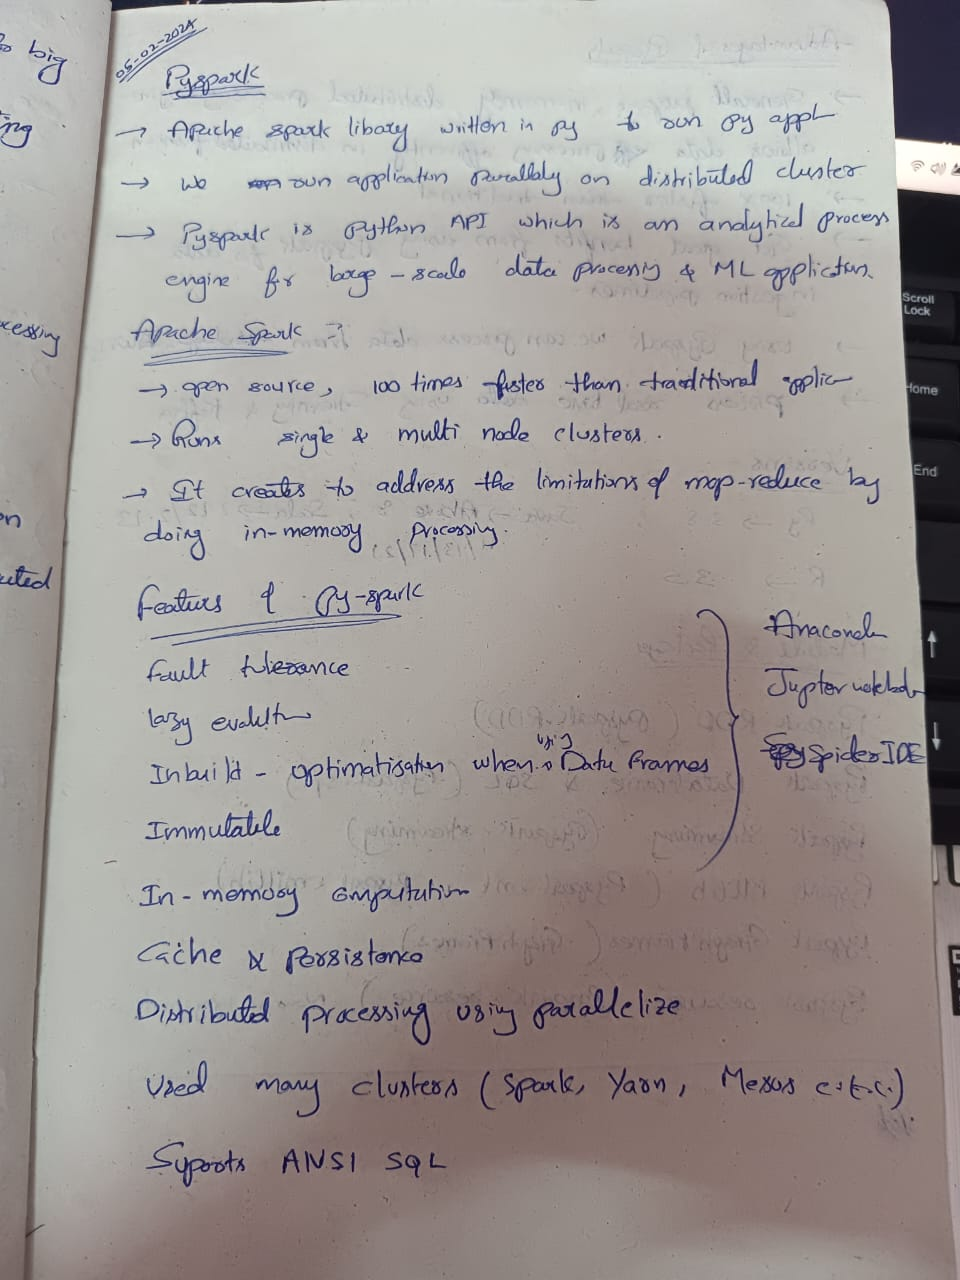 05-02-2024
Pyspark
→ Apache spark libary written in py to run py appl
→ We run application parallely on distributed cluster
→ Pyspark is Python API which is an analytical process
engine for large-scale data processing & ML application.
Apache Spark :-
→ open source, 100 times faster than traditional applic
→ Runs single & multi node clusters.
→ It creates to address the limitations of map-reduce by
doing in-memory processing.
Features of Py-spark
Fault tolerance
lazy evalution
Inbuild - optimatisation when using Data Frames
Immutable
In-memory computation
Cache & Persistence
Distributed processing using parallelize
Used many clusters (Spark, Yarn, Mesus e.t.c.)
Suports ANSI SQL
Anaconda
Jupter notebook
Spider IDE
big
ing
cessing
on
uted
Scroll
Lock
Home
End